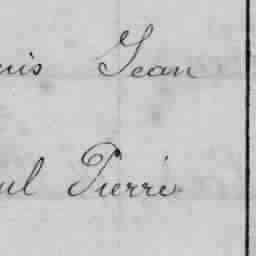 uis Jean
ul Pierre